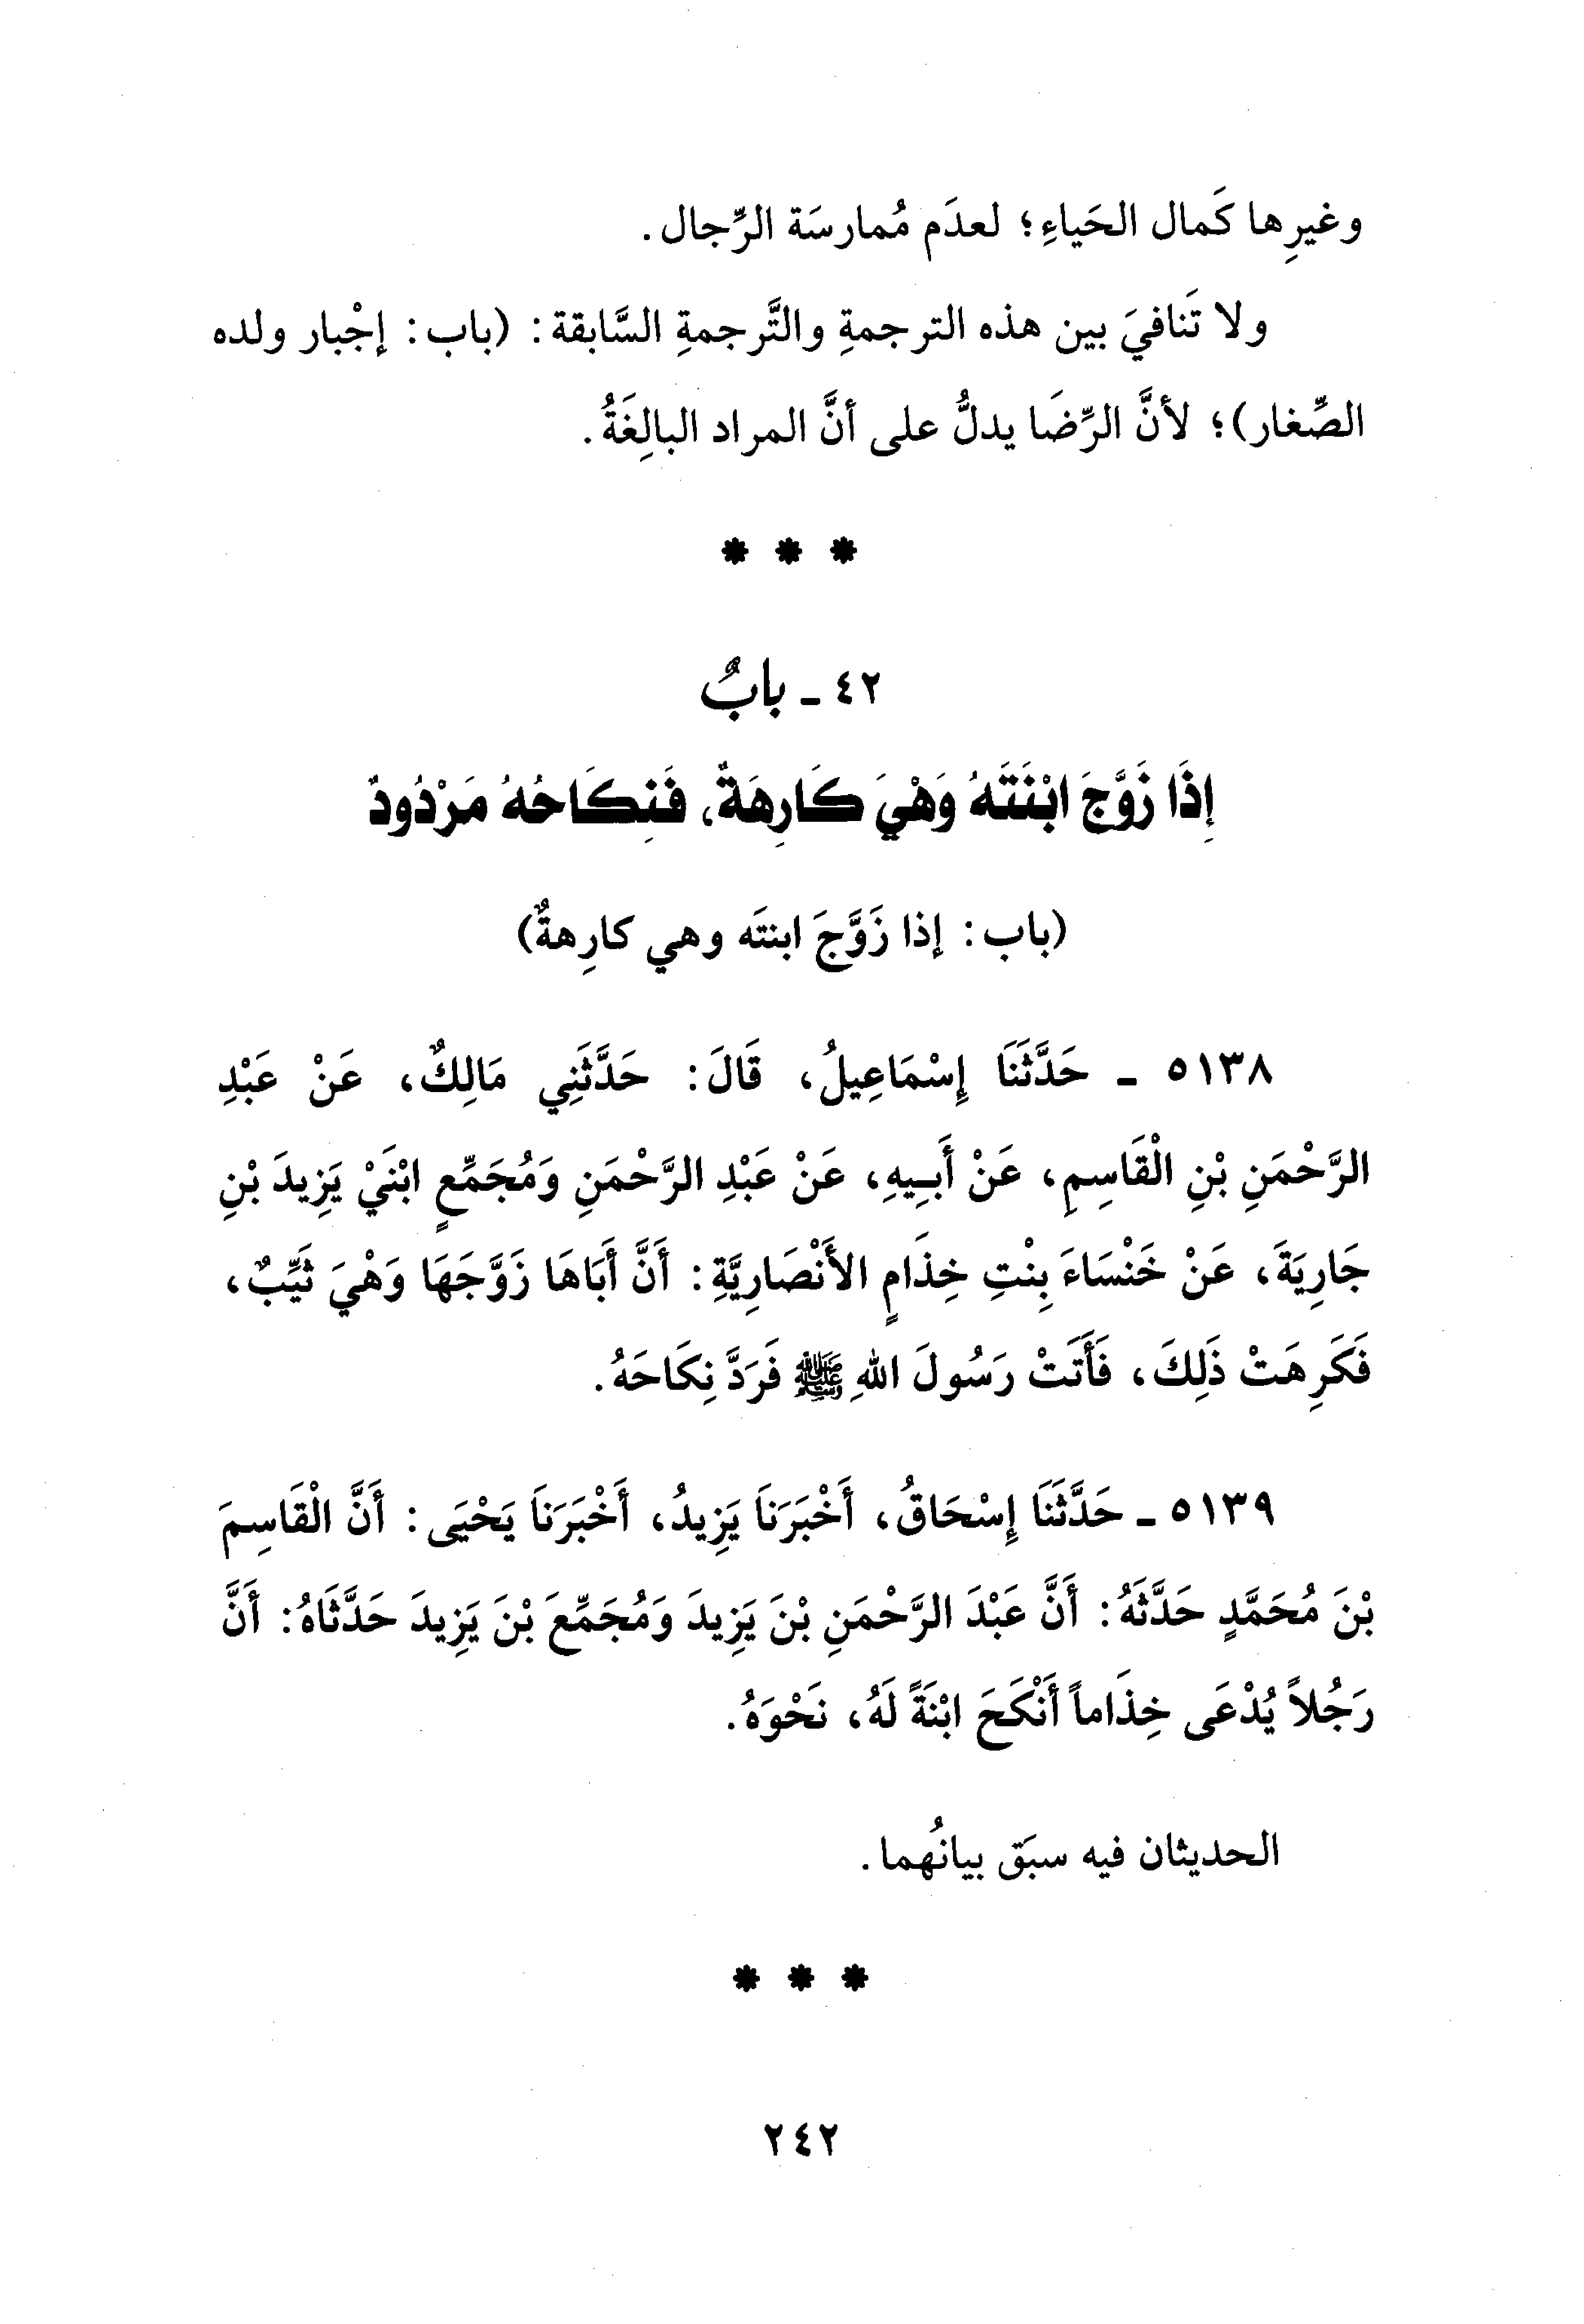 وغيرِها كَمال الحَياءِ؛ لعدَم مُمارسَة الرِّجال.
ولا تَنافيَ بين هذه الترجمةِ والتَّرجمةِ السَّابقة: (باب: إجْبار ولده
الصِّغار)؛ لأنَّ الرِّضَا يدلُّ على أنَّ المراد البالِغَةُ.
* * *
٤٢ - بابٌ
إِذَا زَوَّجَ ابْنَتَهُ وَهْيَ كَارِهَةٌ، فَنِكَاحُهُ مَرْدُودٌ
(باب: إذا زَوَّجَ ابنتَه وهي كارِهةٌ)
٥١٣٨ - حَدَّثَنَا إِسْمَاعِيلُ، قَالَ: حَدَّثَنِي مَالِكٌ، عَنْ عَبْدِ
الرَّحْمَنِ بْنِ الْقَاسِمِ، عَنْ أَبِيهِ، عَنْ عَبْدِ الرَّحْمَنِ وَمُجَمِّعٍ ابْنَيْ يَزِيدَ بْنِ
جَارِيَةَ، عَنْ خَنْسَاءَ بِنْتِ خِذَامٍ الأَنْصَارِيَّةِ: أَنَّ أَبَاهَا زَوَّجَهَا وَهْيَ ثَيِّبٌ،
فَكَرِهَتْ ذَلِكَ، فَأَتَتْ رَسُولَ اللهِ ﷺ فَرَدَّ نِكَاحَهُ.
٥١٣٩ - حَدَّثَنَا إِسْحَاقُ، أَخْبَرَنَا يَزِيدُ، أَخْبَرَنَا يَحْيَى: أَنَّ الْقَاسِمَ
بْنَ مُحَمَّدٍ حَدَّثَهُ: أَنَّ عَبْدَ الرَّحْمَنِ بْنَ يَزِيدَ وَمُجَمِّعَ بْنَ يَزِيدَ حَدَّثَاهُ: أَنَّ
رَجُلاً يُدْعَى خِذَاماً أَنْكَحَ ابْنَةً لَهُ، نَحْوَهُ.
الحديثان فيه سبَق بيانُهما.
* * *
٢٤٢